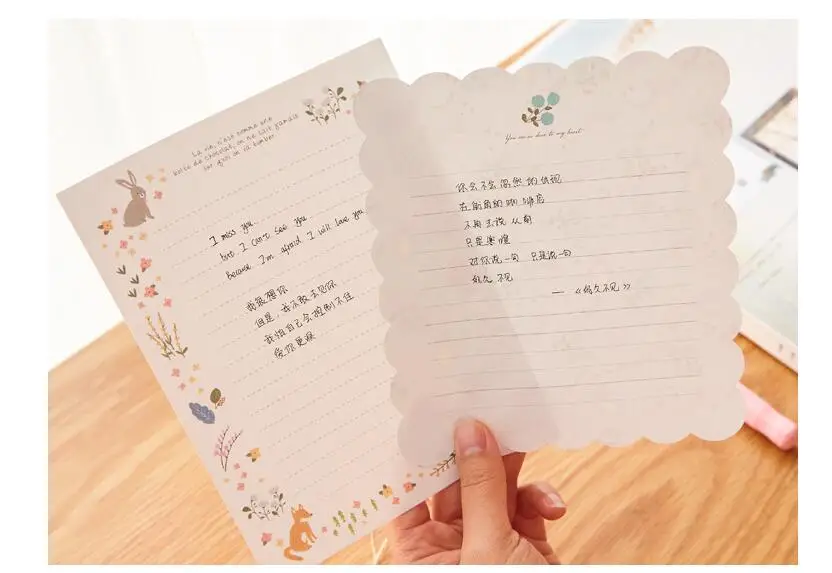 La vie, c'est comme une
boîte de chocolat, on ne sait jamais
sur quoi on va tomber
I miss you.
but I can't see you
Because I'm afraid I will love you
我很想你
但是,我不敢去见你
我怕自己会控制不住
爱你更深
to my heart
你会不会忽然的出现
在街角的咖啡店
不再去说从前
只是寒暄
对你说一句 只是说一句
好久不见
— 《好久不见》